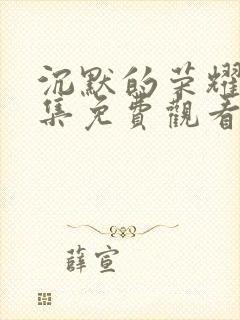 沉默的荣耀
集免費觀看
薛宣